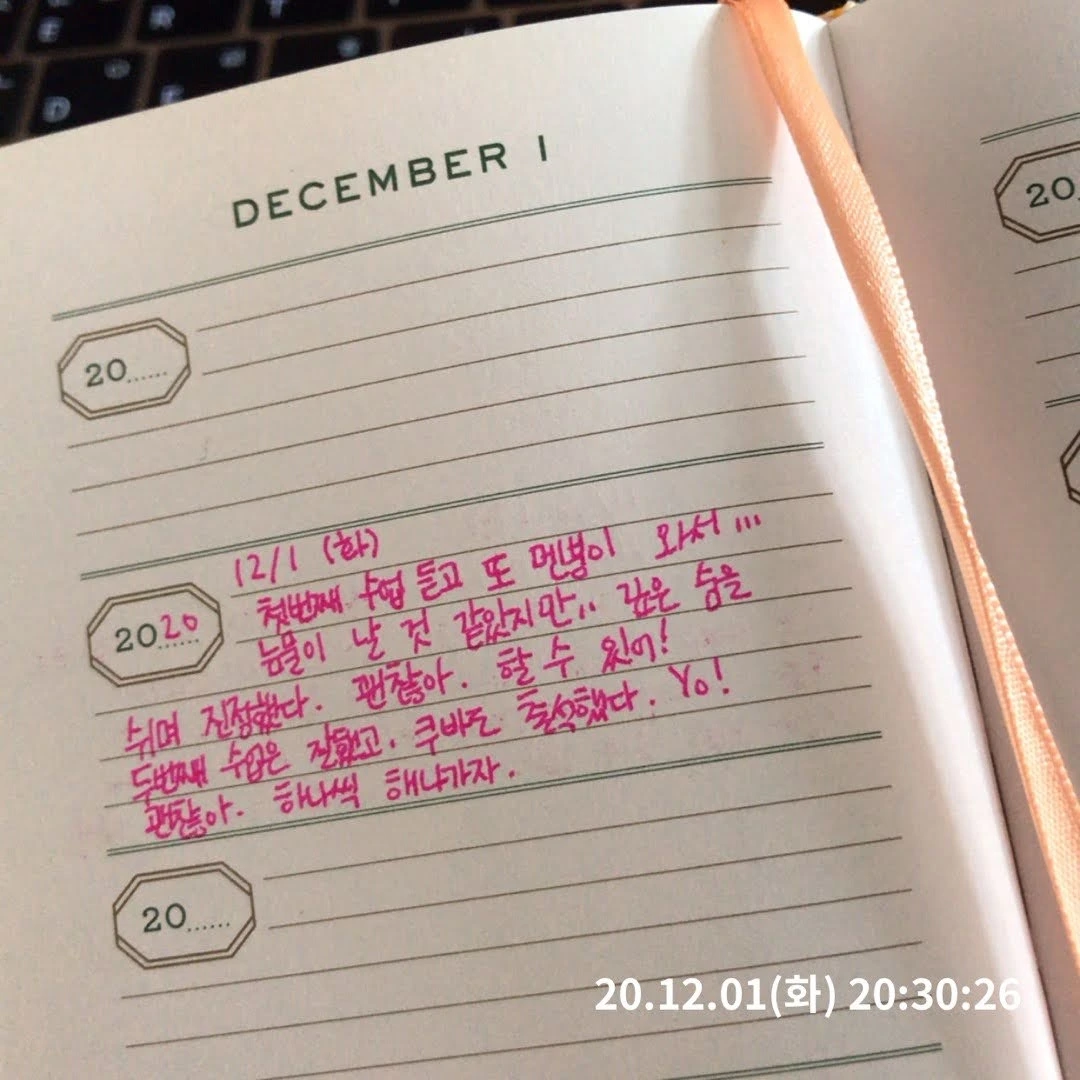 E
D
DECEMBER 1
20......
12/1 (화)
2020
첫번째 수업 듣고 또 멘붕이 와서...
눈물이 날 것 같았지만.. 깊은 숨을
쉬며 진정했다. 괜찮아. 할 수 있어!
두번째 수업은 잘했고. 쿠바도 출석했다. Yo!
괜찮아. 하나씩 해나가자.
20......
20
20.12.01(화) 20:30:26